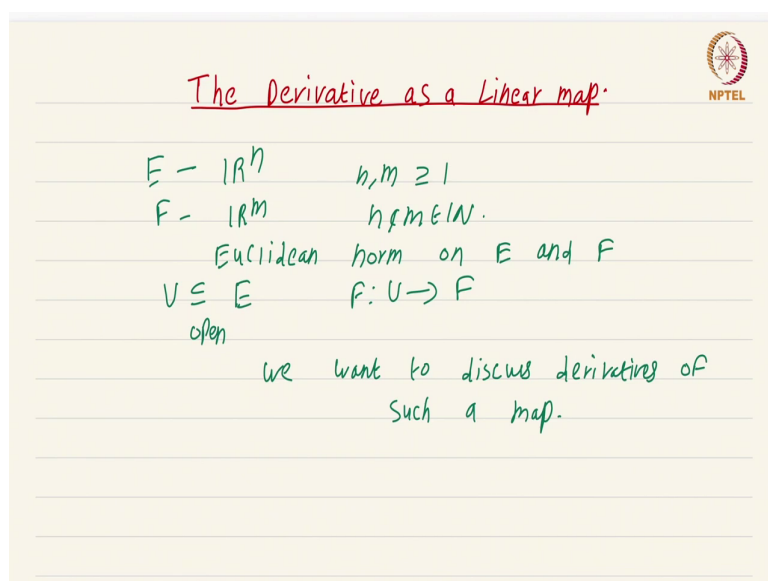 The Derivative as a Linear map.
NPTEL
E - ℝⁿ n, m ≥ 1
F - ℝᵐ n & m ∈ ℕ.
Euclidean norm on E and F
U ⊆ E F: U → F
open
we want to discuss derivatives of
such a map.